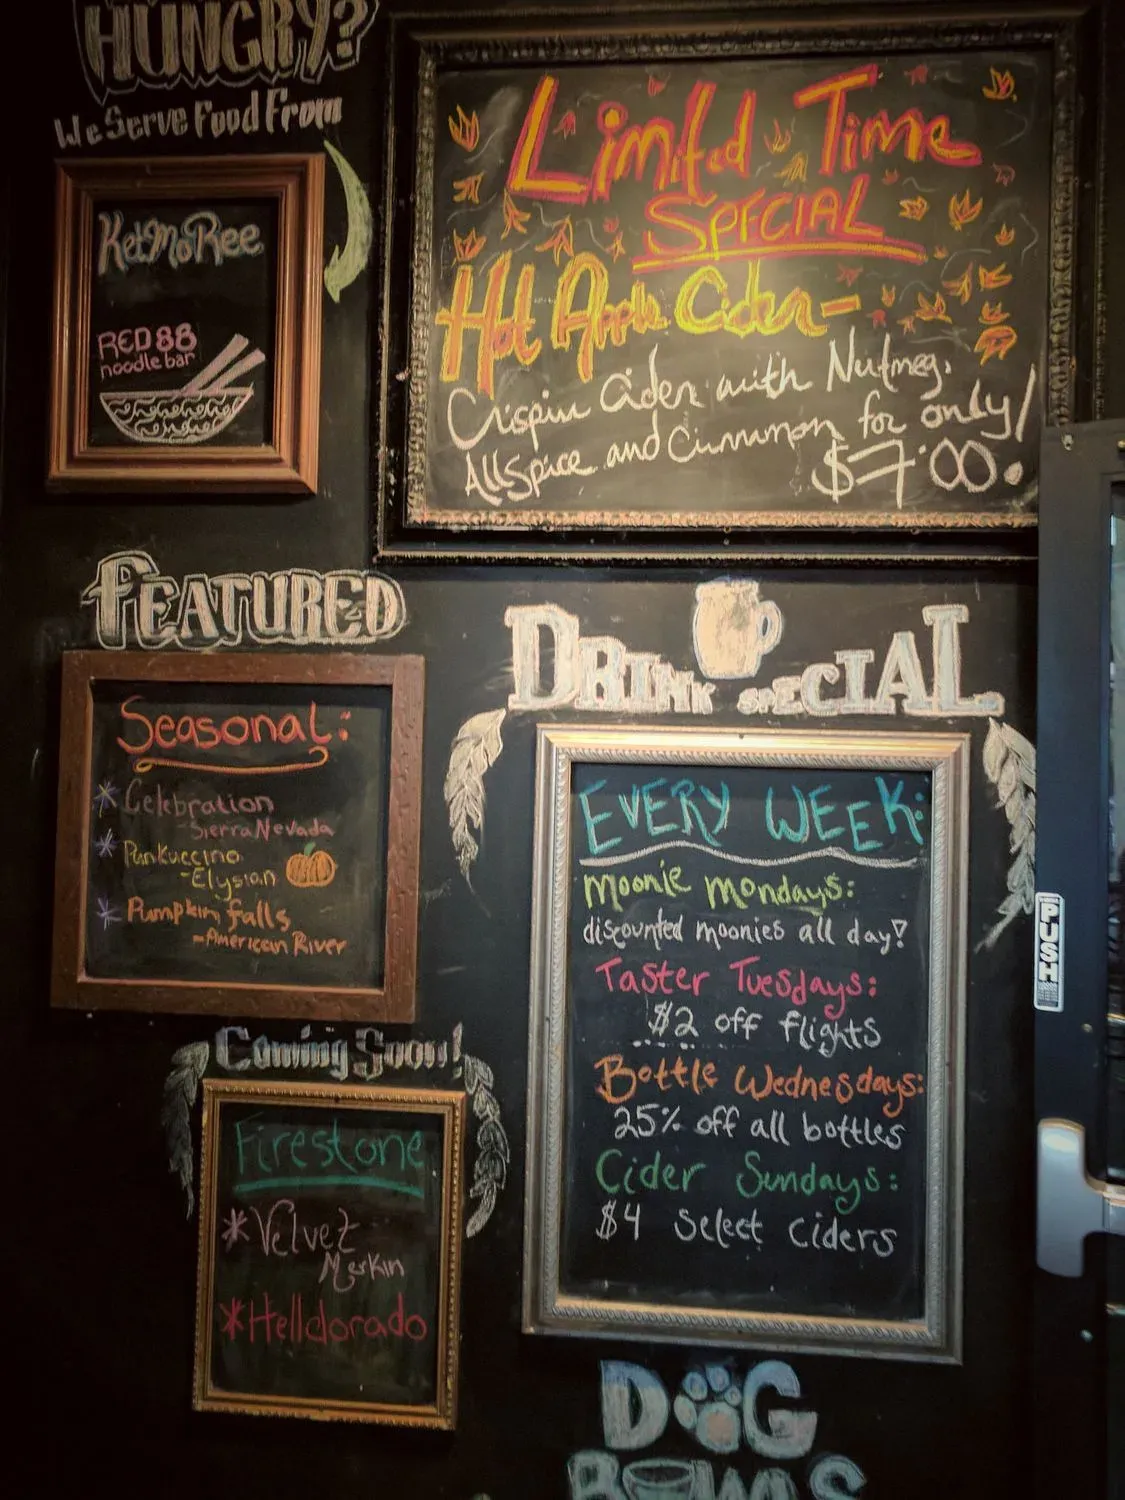 HUNGRY?
We Serve Food From
KetMoRee
RED 88
noodle bar
Limited Time
SPECIAL
Hot Apple Cider-
Crispin Cider with Nutmeg,
AllSpice and Cinnamon for only
$7.00.
FEATURED
Seasonal:
* Celebration
-Sierra Nevada
* Punkuccino
-Elysian
* Pumpkin falls
-American River
DRINK SPECIAL
EVERY WEEK:
Moonie Mondays:
discounted moonies all day!
Taster Tuesdays:
$2 off flights
Bottle Wednesdays:
25% off all bottles
Cider Sundays:
$4 Select Ciders
PUSH
Coming Soon!
Firestone
*Velvet
Merkin
*Helldorado
DOG
BOWLS